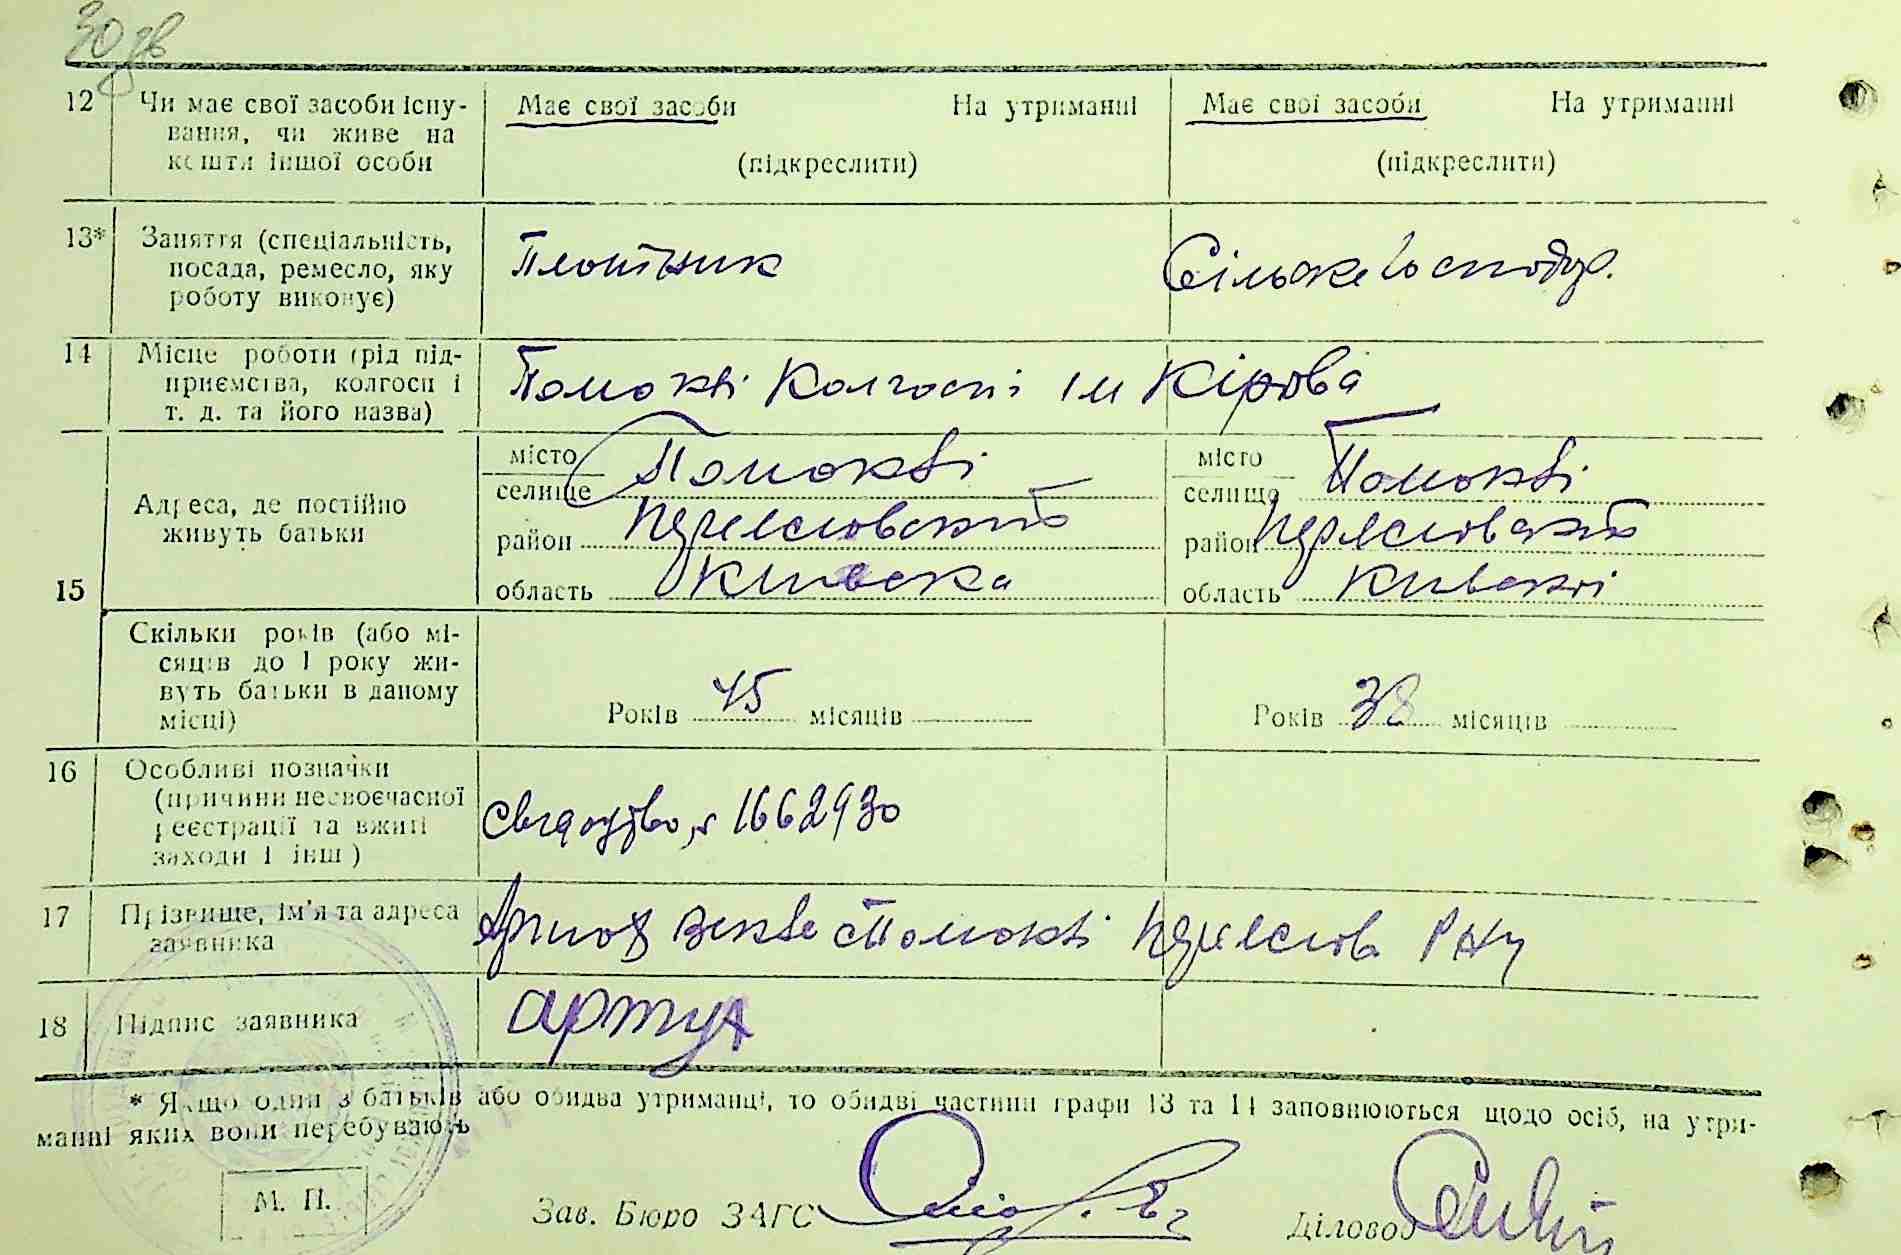 30
12 Чи має свої засоби існу-
вання, чи живе на
кошти іншої особи
Має свої засоби На утриманні
(підкреслити)
Має свої засоби На утриманні
(підкреслити)
13* Заняття (спеціальність,
посада, ремесло, яку
роботу виконує)
Плотник
14 Місце роботи (рід під-
приємства, колгосп і
т. д. та його назва)
Помокві Колгосп ім Кірова
15 Адреса, де постійно
живуть батьки
місто
селище Помокві
район
область
місто
селище Помокві
район
область
Скільки років (або мі-
сяців до 1 року жи-
вуть батьки в даному
місці)
Років 45 місяців
Років 38 місяців
16 Особливі позначки
(причини несвоєчасної
реєстрації та вжиті
заходи і інш)
1662930
17 Прізвище, ім'я та адреса
заявника
Помокві
18 Підпис заявника
Артух
* Якщо один з батьків або обидва утриманці, то обидві частини графи 13 та 14 заповнюються щодо осіб, на утри-
манні яких вони перебувають
М. П.
Зав. Бюро ЗАГС
Діловод